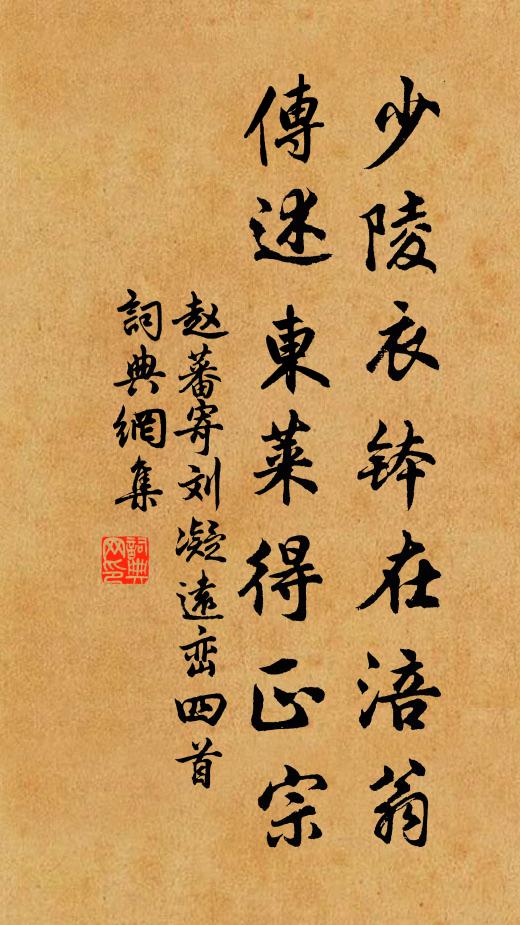 少陵衣鉢在涪翁
傳述東萊得正宗
赵蕃寄刘凝遠峦四首
詞典網集
詞典網印